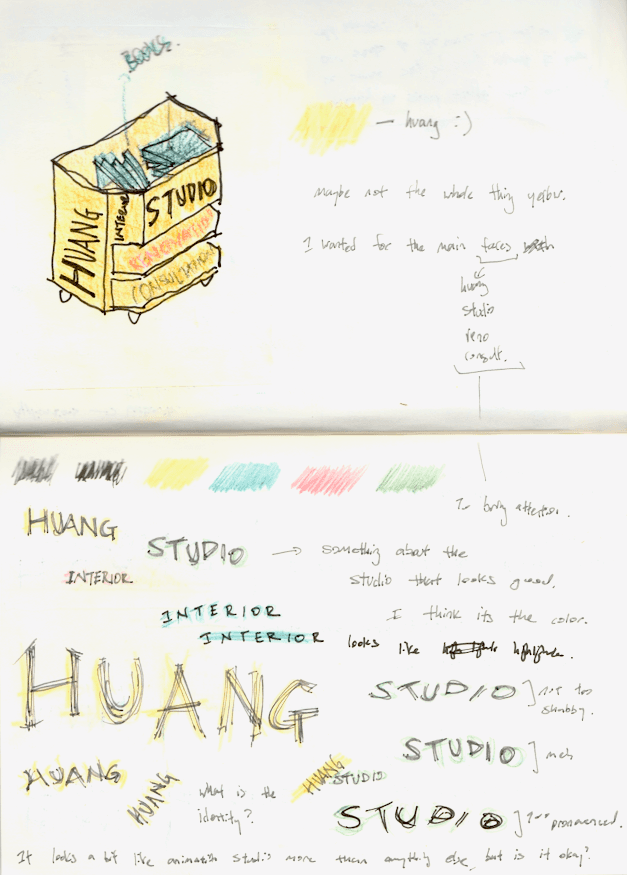 BOOKS.
HUANG
INTERIOR
STUDIO
RENOVATION
CONSULTATION
— huang :)
maybe not the whole thing yellow.
I wanted for the main faces
huang
studio
reno
consult.
To bring attention.
HUANG
STUDIO → something about the
studio that looks good.
INTERIOR
I think its the color.
INTERIOR
INTERIOR
looks like
HUANG
STUDIO ] not too
shabby.
STUDIO ] meh
HUANG
HUANG
what is the
identity?
HUANG
STUDIO
STUDIO ] too pronounced.
It looks a bit like animation studio more than anything else, but is it okay?